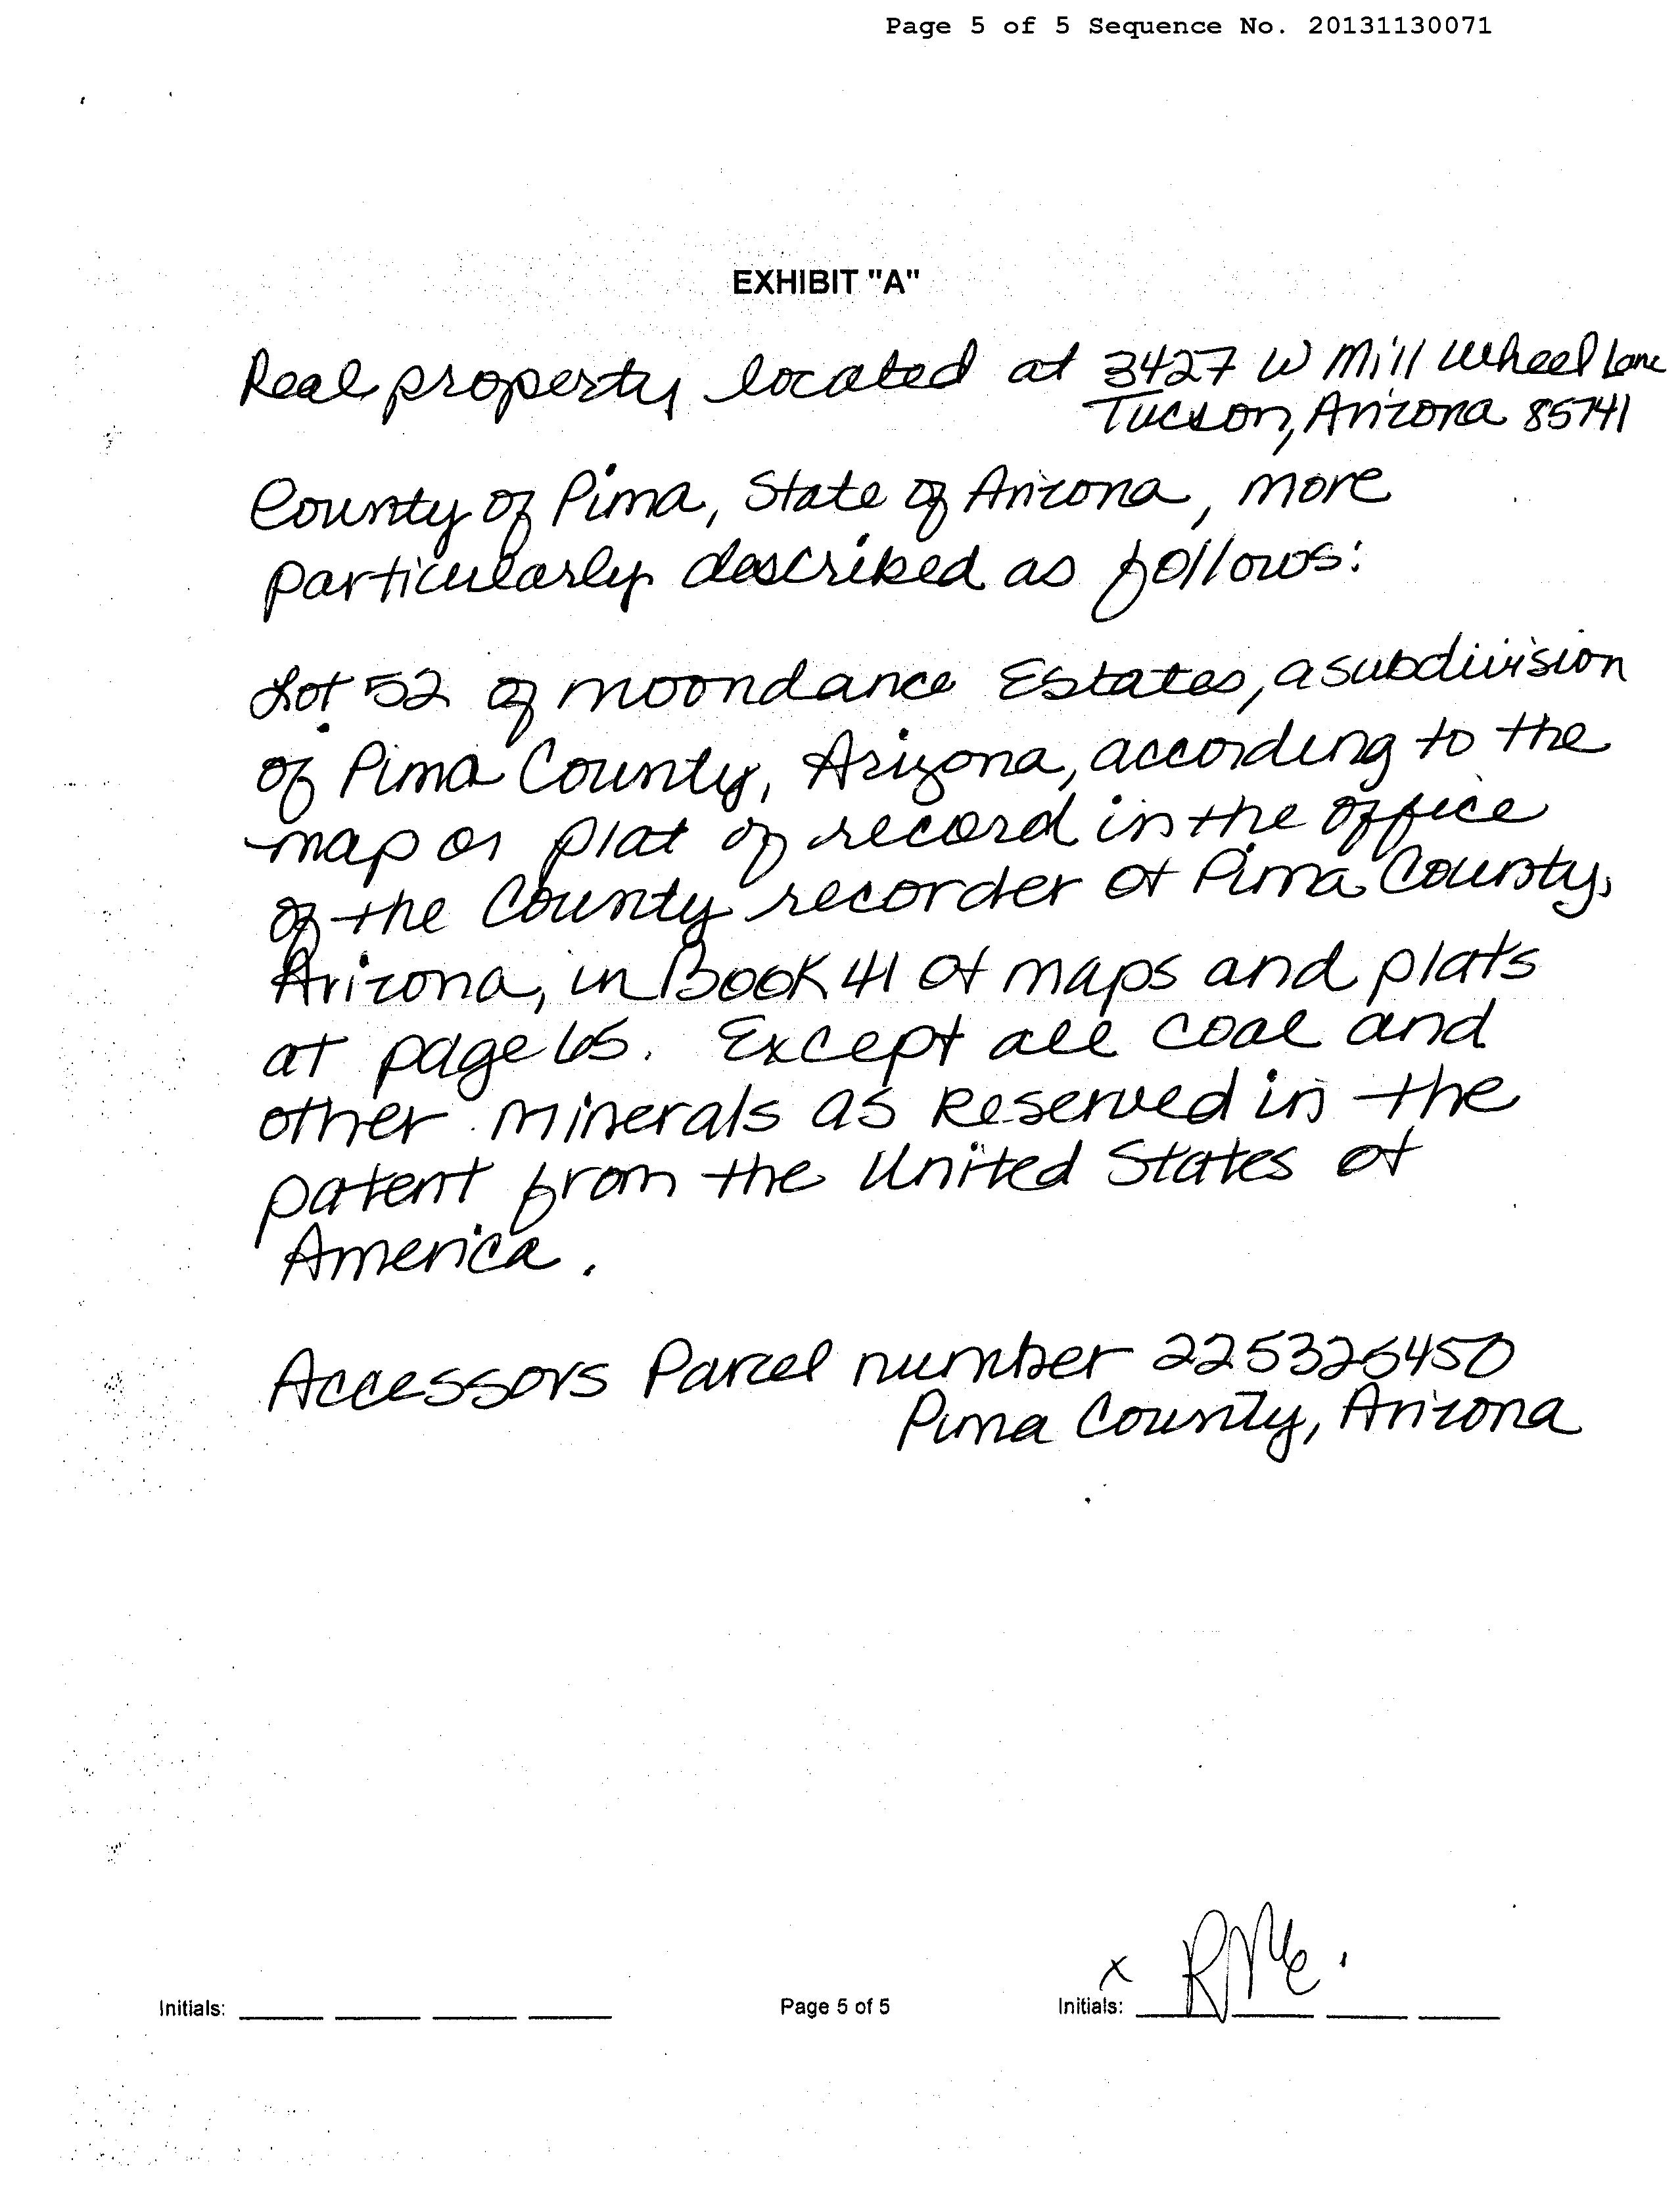 Page 5 of 5 Sequence No. 20131130071
EXHIBIT "A"
Real property located at 3427 W Mill Wheel Lane
Tucson, Arizona 85741
County of Pima, State of Arizona, more
particularly described as follows:
Lot 52 of moondance Estates, a subdivision
of Pima County, Arizona, according to the
map or plat of record in the office
of the County recorder of Pima County,
Arizona, in Book 41 of maps and plats
at page 65. Except all coal and
other minerals as Reserved in the
patent from the United States of
America.
Accessors Parcel number 225326450
Pima County, Arizona
x RMC.
Initials: Page 5 of 5 Initials: